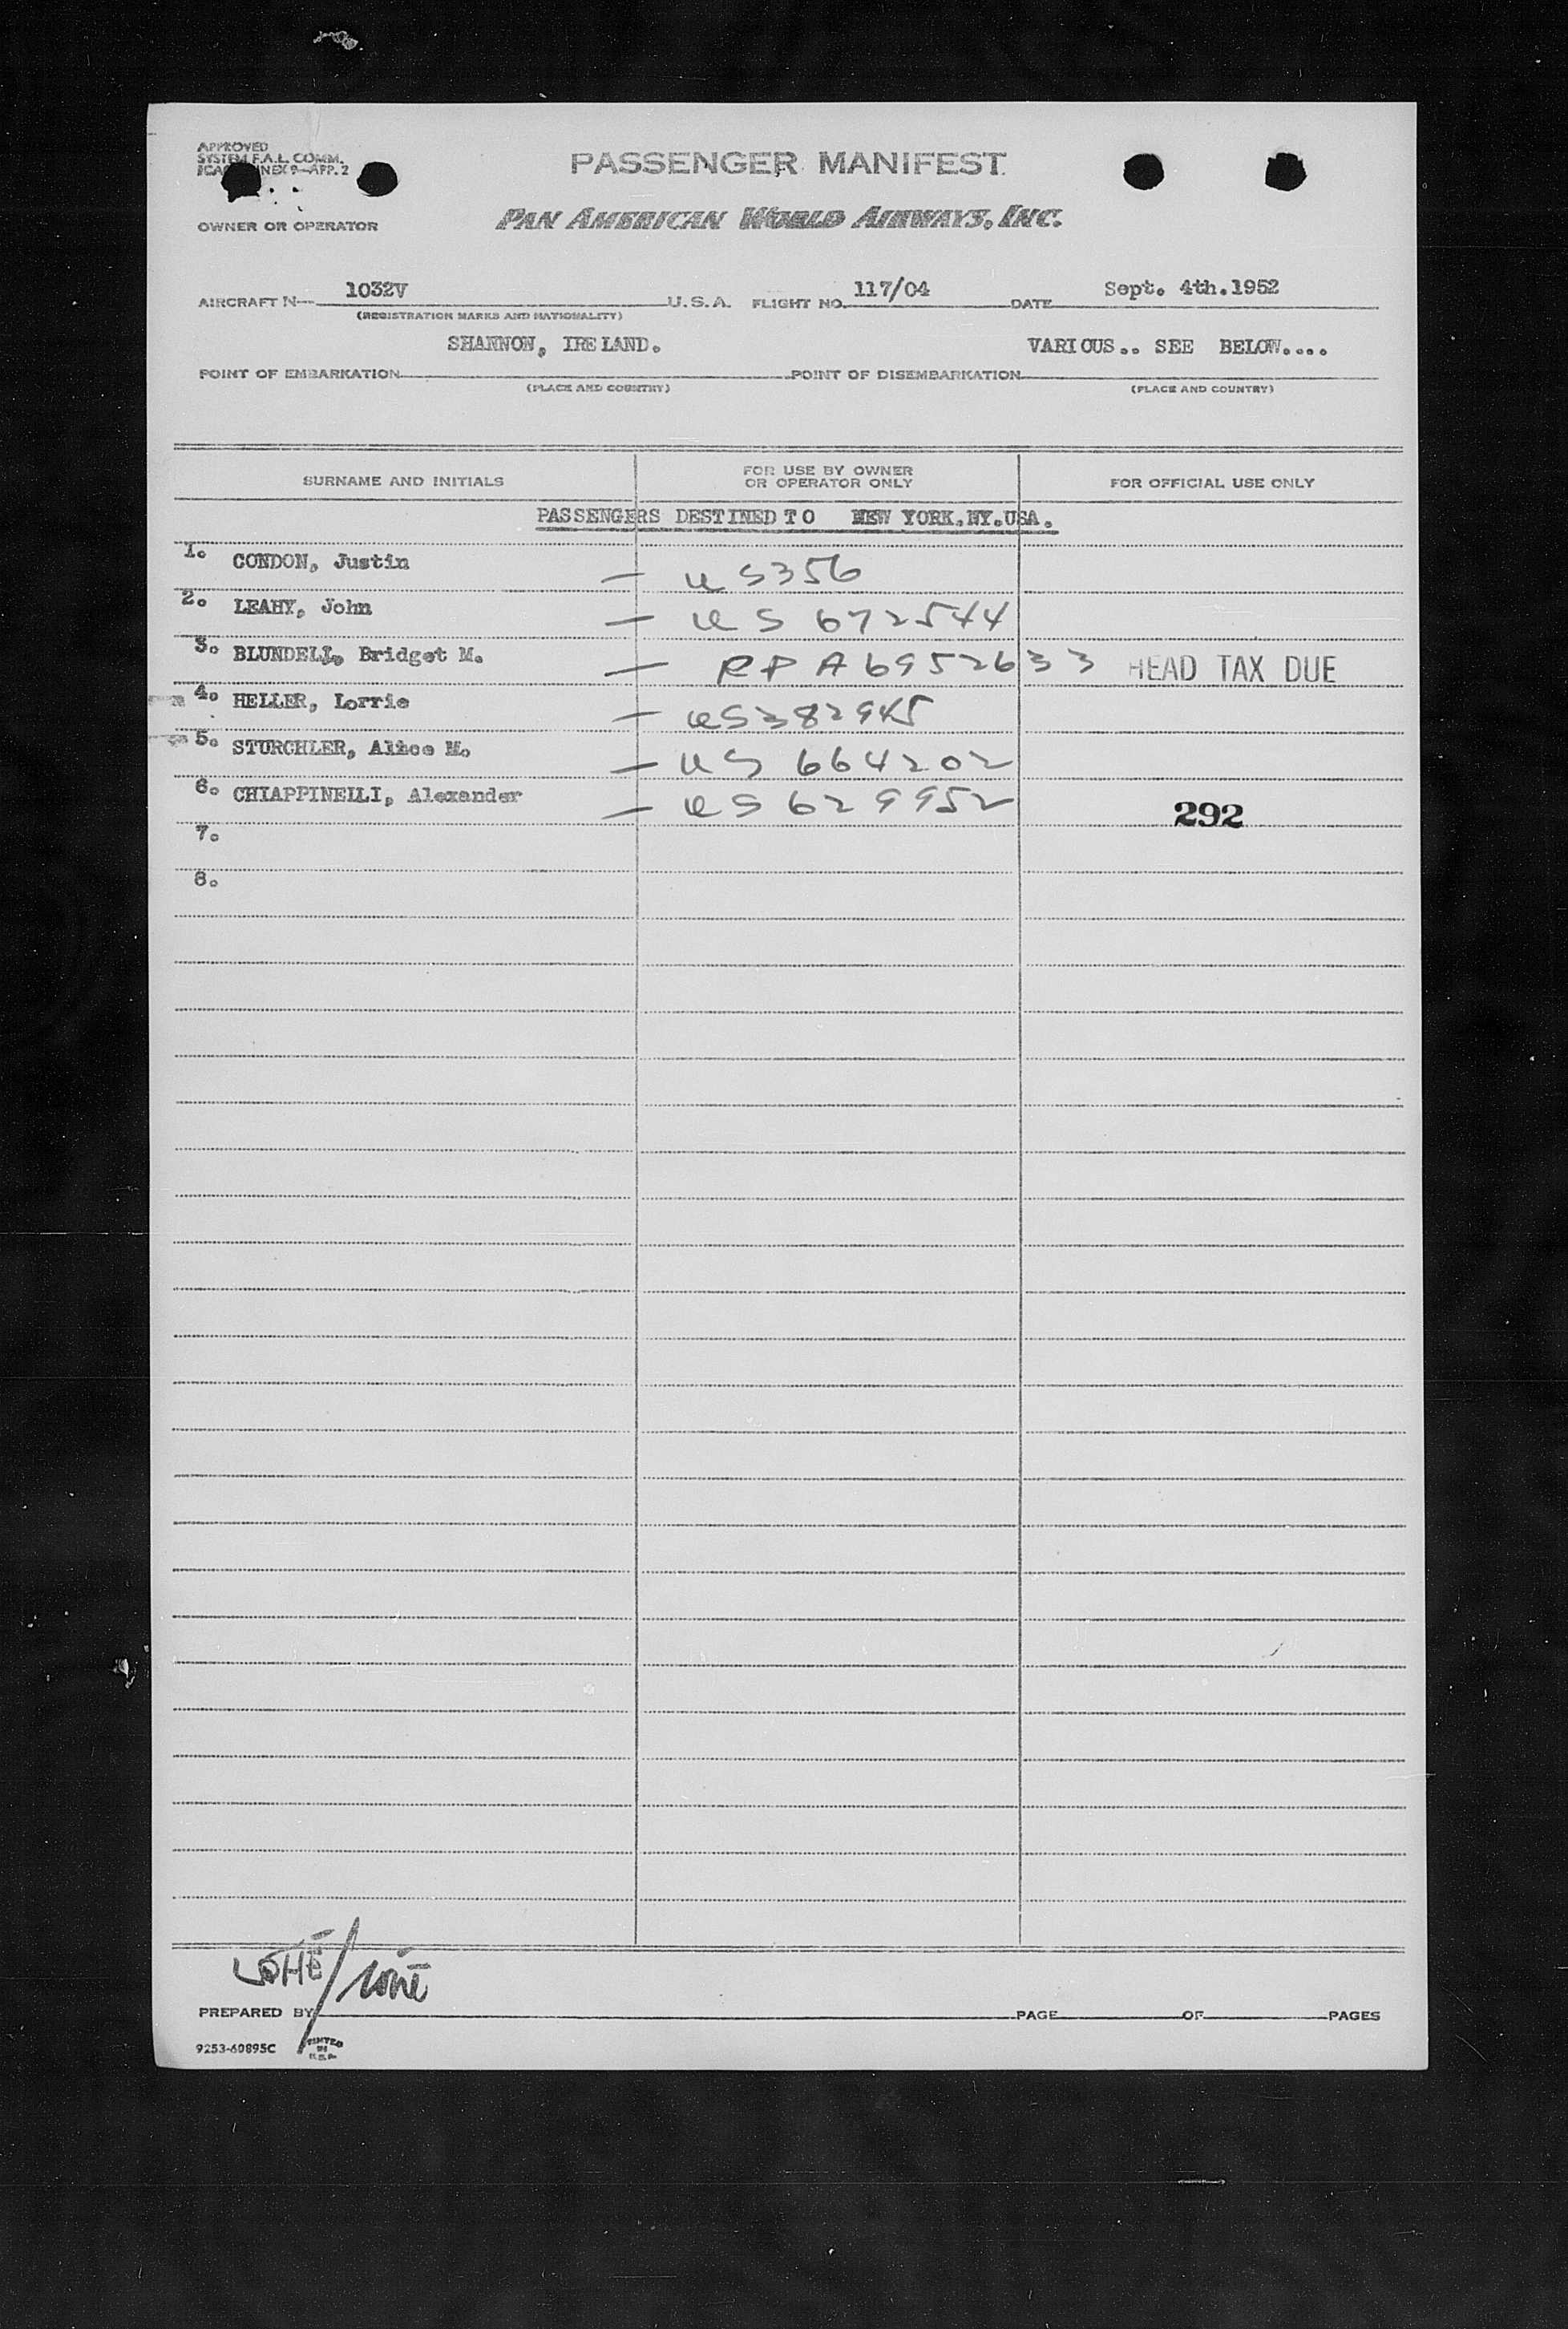 APPROVED
SYSTEM F.A.L. COMM.
ICAO ANNEX 9—APP. 2
PASSENGER MANIFEST
OWNER OR OPERATOR
PAN AMERICAN WORLD AIRWAYS, INC.
AIRCRAFT N— 1032V U.S.A. FLIGHT NO. 117/04 DATE Sept. 4th.1952
(REGISTRATION MARKS AND NATIONALITY)
SHANNON, IRELAND. VARIOUS.. SEE BELOW....
POINT OF EMBARKATION POINT OF DISEMBARKATION
(PLACE AND COUNTRY) (PLACE AND COUNTRY)
SURNAME AND INITIALS FOR USE BY OWNER OR OPERATOR ONLY FOR OFFICIAL USE ONLY
PASSENGERS DESTINED TO NEW YORK.NY.USA.
1. CONDON, Justin — US356
2. LEAHY, John — US 672544
3. BLUNDELL, Bridget M. — RP A6952633 HEAD TAX DUE
4. HELLER, Lorrie — US382945
5. STURCHLER, Alice M. — US 664202
6. CHIAPPINELLI, Alexander — US 629952 292
7.
8.
PREPARED BY PAGE OF PAGES
9253-60895C PRINTED IN U.S.A.